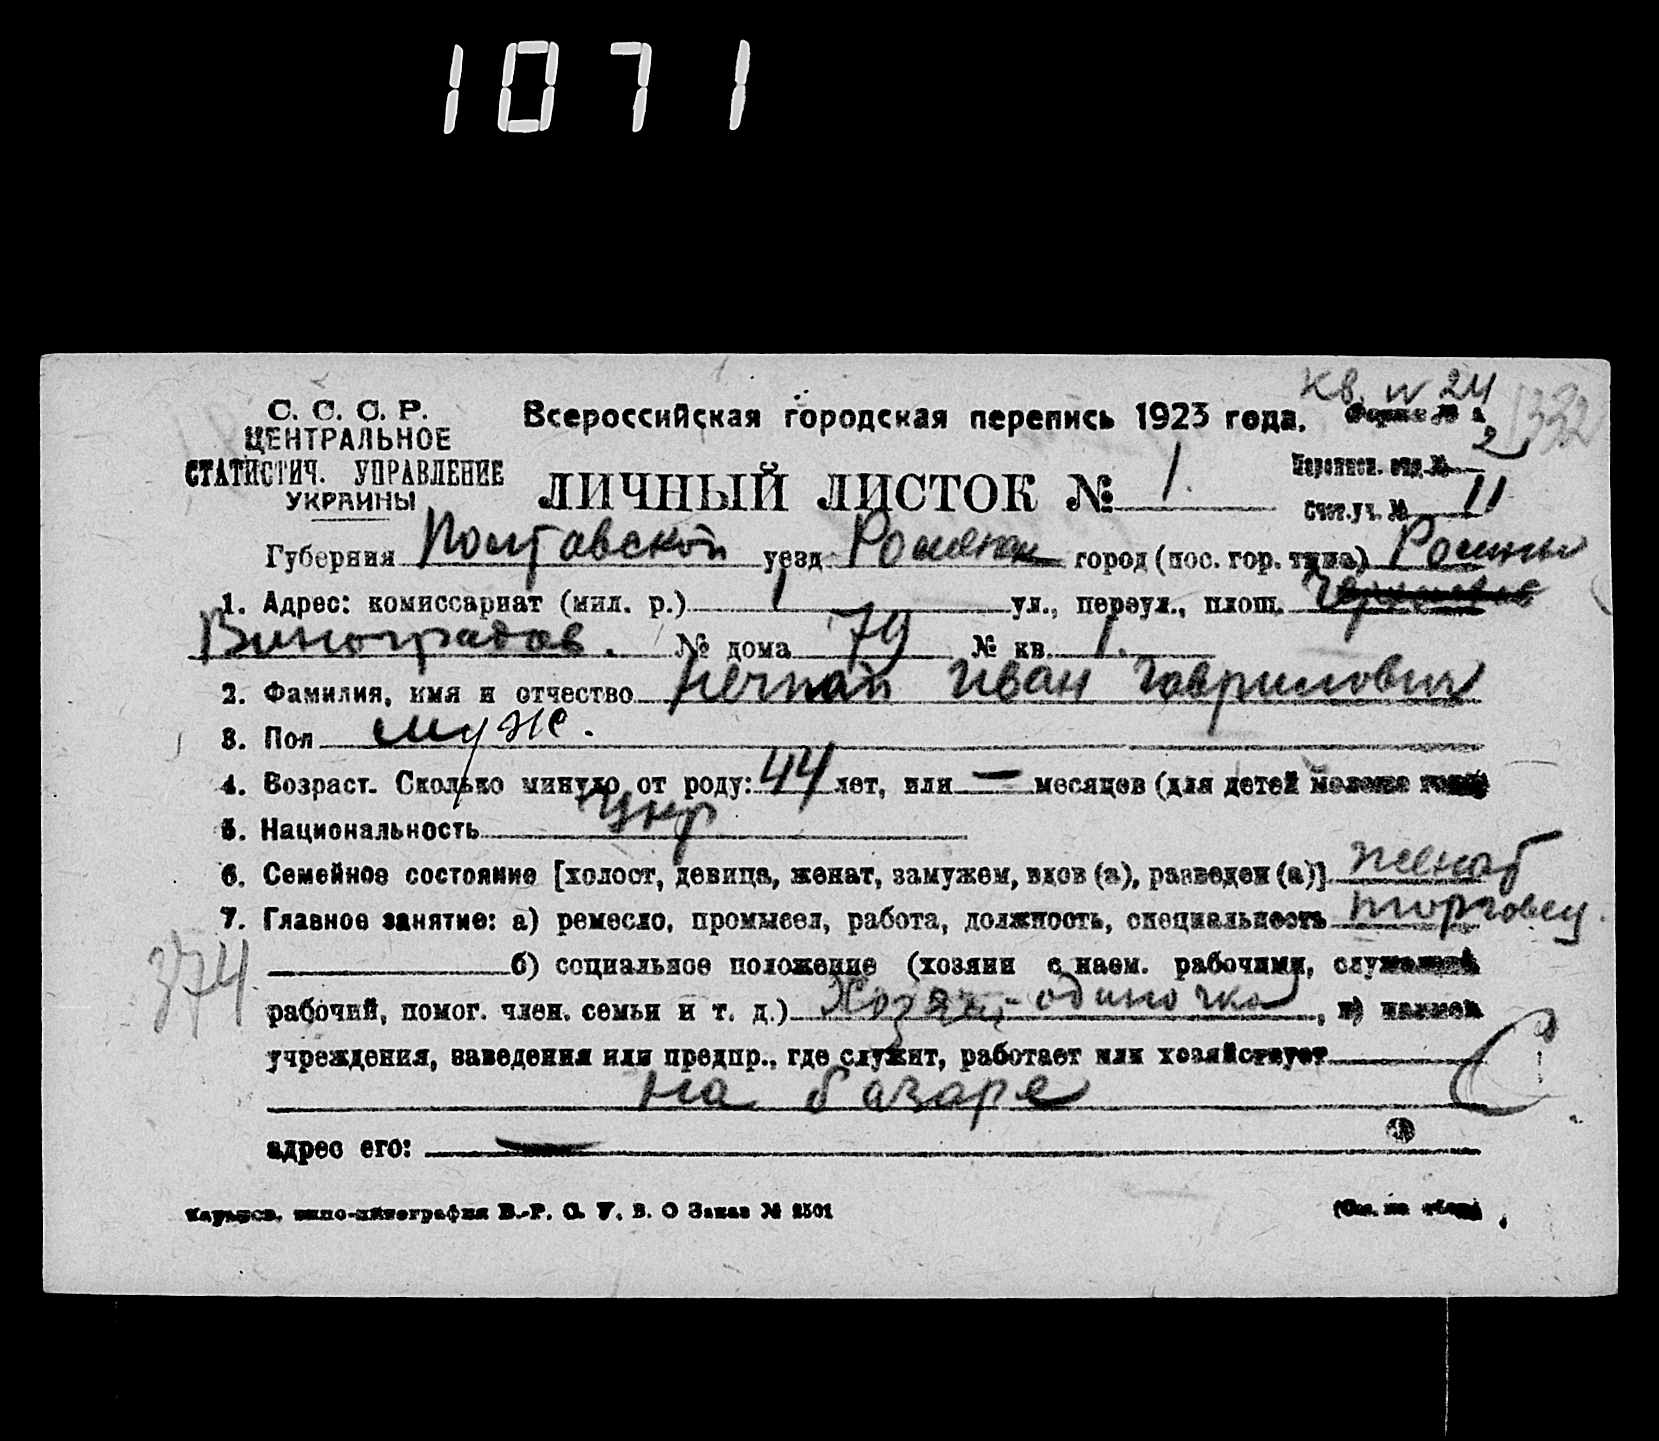 1071
Кв. № 24
С. С. С. Р.
ЦЕНТРАЛЬНОЕ
СТАТИСТИЧ. УПРАВЛЕНИЕ
УКРАИНЫ
Всероссийская городская перепись 1923 года.
2
ЛИЧНЫЙ ЛИСТОК № 1.
Счет. уч. № 11
Губерния Полтавской уезд Роменск город (пос. гор. типа) Ромны
1. Адрес: комиссариат (мил. р.) 1 ул., переул., площ.
Виноградов. № дома 79 № кв. 1.
2. Фамилия, имя и отчество Нечпай Иван Гаврилович
3. Пол муже.
4. Возраст. Сколько минуло от роду: 44 лет, или — месяцев (для детей
5. Национальность Укр
6. Семейное состояние [холост, девица, женат, замужем, вдов (а), разведен (а)] женат
7. Главное занятие: а) ремесло, промысел, работа, должность, специальность торговец.
374
б) социальное положение (хозяин с наем. рабочими,
рабочий, помог. член. семьи и т. д.) Хозяин-одиночка,
учреждения, заведения или предпр., где служит, работает или хозяйствует
на базаре
адрес его: —
В.-Р. С. У. В. О Заказ № 2501